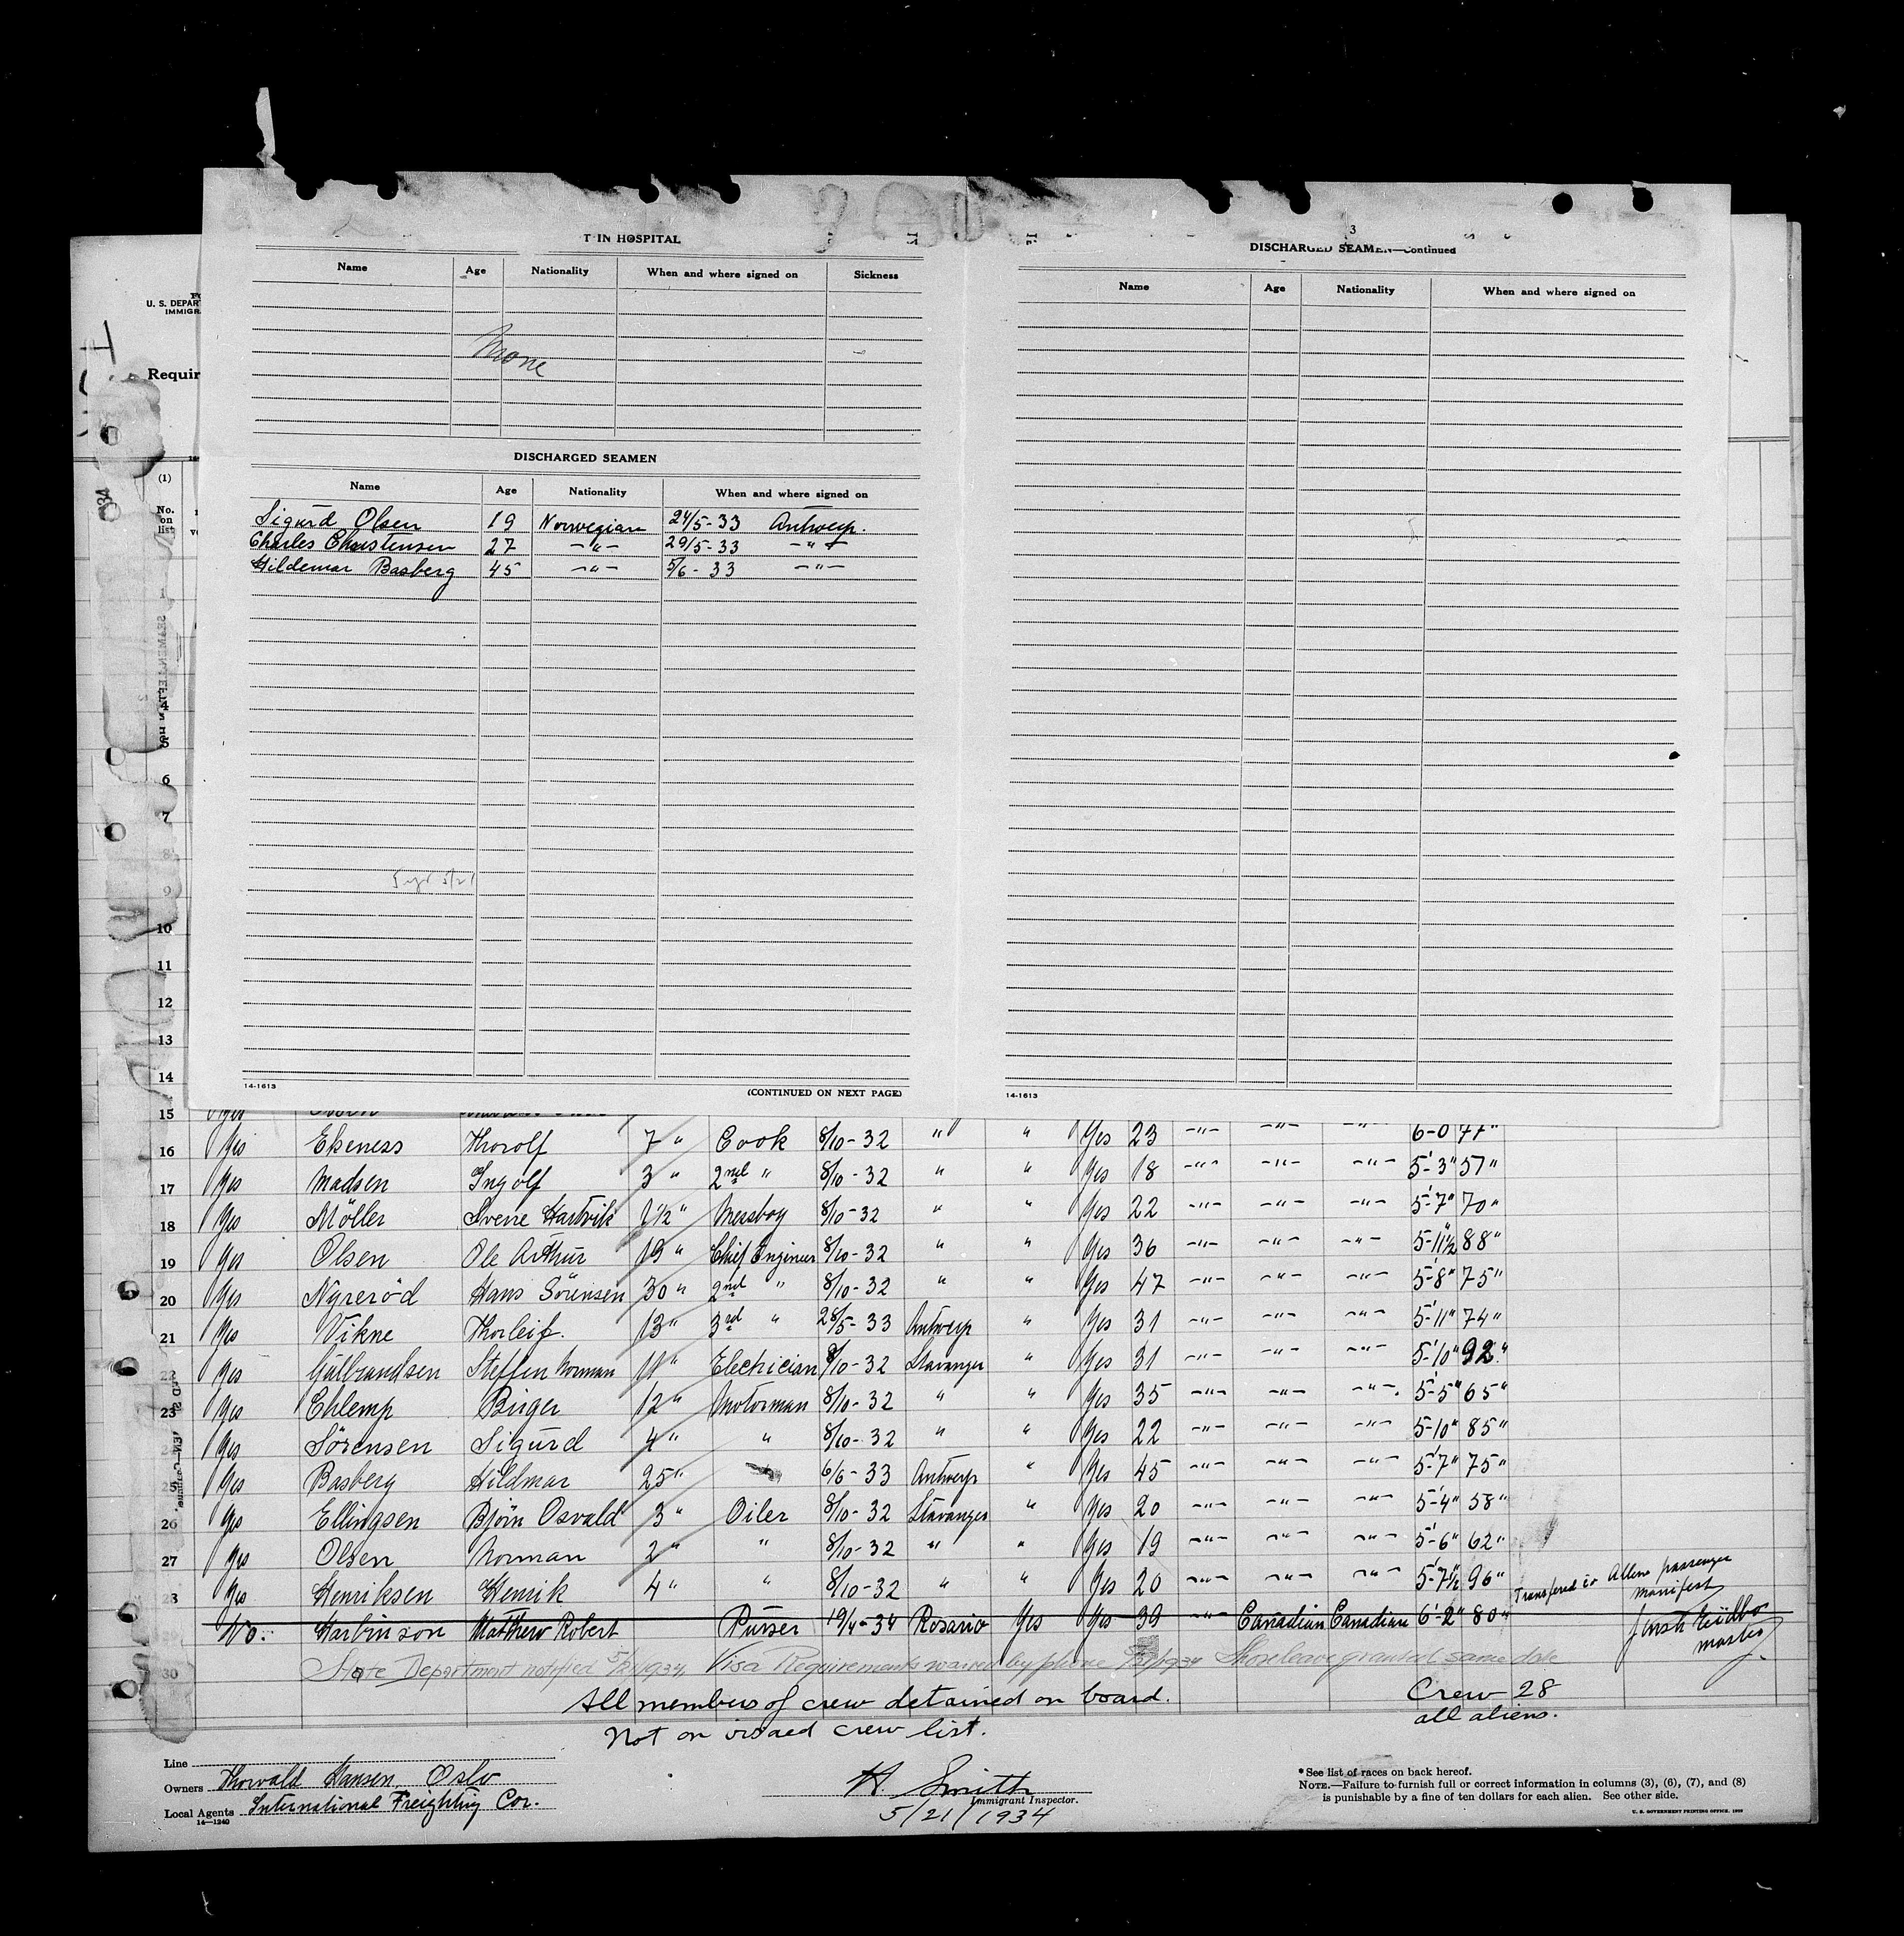 T IN HOSPITAL
Name Age Nationality When and where signed on Sickness
None
DISCHARGED SEAMEN
Name Age Nationality When and where signed on
Sigurd Olsen 19 Norwegian 24/5-33 Antwerp.
Charles Christensen 27 -"- 29/5-33 -"-
Hildemar Basberg 45 -"- 5/6-33 -"-
14-1613
(CONTINUED ON NEXT PAGE)
3
DISCHARGED SEAMEN—Continued
Name Age Nationality When and where signed on
14-1613
U. S. DEPAR
IMMIGR
Requir
(1)
No. on list
6
7
8
9
10
11
12
13
14
15 Yes
16 Yes Ekeness Thorolf 7 " Cook 8/10-32 " " Yes 23 -"- -"- -"- 6-0 77"
17 Yes Madsen Ingolf 3 " 2nd " 8/10-32 " " Yes 18 -"- -"- -"- 5'-3" 57"
18 Yes Möller Sverre Hartvik 1½ " Messboy 8/10-32 " " Yes 22 -"- -"- -"- 5'-7" 70"
19 Yes Olsen Ole Arthur 19 " Chief Engineer 8/10-32 " " Yes 36 -"- -"- -"- 5'-11½ 88"
20 Yes Nyreröd Hans Sörensen 30 " 2nd " 8/10-32 " " Yes 47 -"- -"- -"- 5'-8" 75"
21 Yes Vikne Thorleif. 13 " 3rd " 28/5-33 Antwerp " Yes 31 -"- -"- -"- 5'-11" 74"
22 Yes Gulbrandsen Steffen Norman 11 " Electrician 8/10-32 Stavanger " Yes 31 -"- -"- -"- 5'-10" 92"
23 Yes Ehlemp Birger 12 " Motorman 8/10-32 " " Yes 35 -"- -"- -"- 5'-5" 65"
Yes Sörensen Sigurd 4 " " 8/10-32 " " Yes 22 -"- -"- -"- 5'-10" 85"
25 Yes Basberg Hildmar 25 " 6/6-33 Antwerp " Yes 45 -"- -"- -"- 5'-7" 75"
26 Yes Ellingsen Björn Osvald 3 " Oiler 8/10-32 Stavanger " Yes 20 -"- -"- -"- 5'-4" 58"
27 Yes Olsen Norman 2 " " 8/10-32 " " Yes 19 -"- -"- -"- 5'-6" 62"
28 Yes Henriksen Henrik 4 " " 8/10-32 " " Yes 20 -"- -"- -"- 5'-7½ 96" Transfered to Aliens passenger manifest
No. Harbinson Matthew Robert Purser 19/4-34 Rosario Yes Yes 39 -"- Canadian Canadian 6'-2" 80"
master
30 State Department notified 5/21/1934. Visa Requirements waived by phone 5/21/1934 Shore leave granted same date
All members of crew detained on board.
Not on visaed crew list.
Crew 28
all aliens.
Line
Owners Thorvald Hansen, Oslo
Local Agents International Freighting Cor.
14—1240
H. Smith
Immigrant Inspector.
5/21/1934
*See list of races on back hereof.
NOTE.—Failure to furnish full or correct information in columns (3), (6), (7), and (8)
is punishable by a fine of ten dollars for each alien. See other side.
U. S. GOVERNMENT PRINTING OFFICE